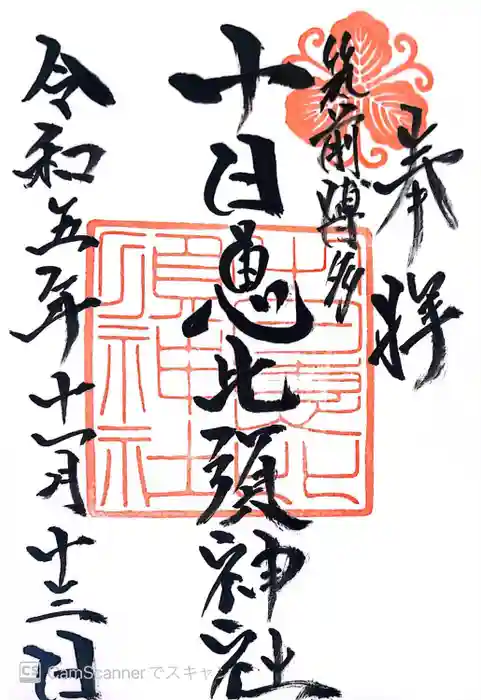 奉拝
筑前博多
十日恵比須神社
令和五年十一月十三日
CS CamScannerでスキャン